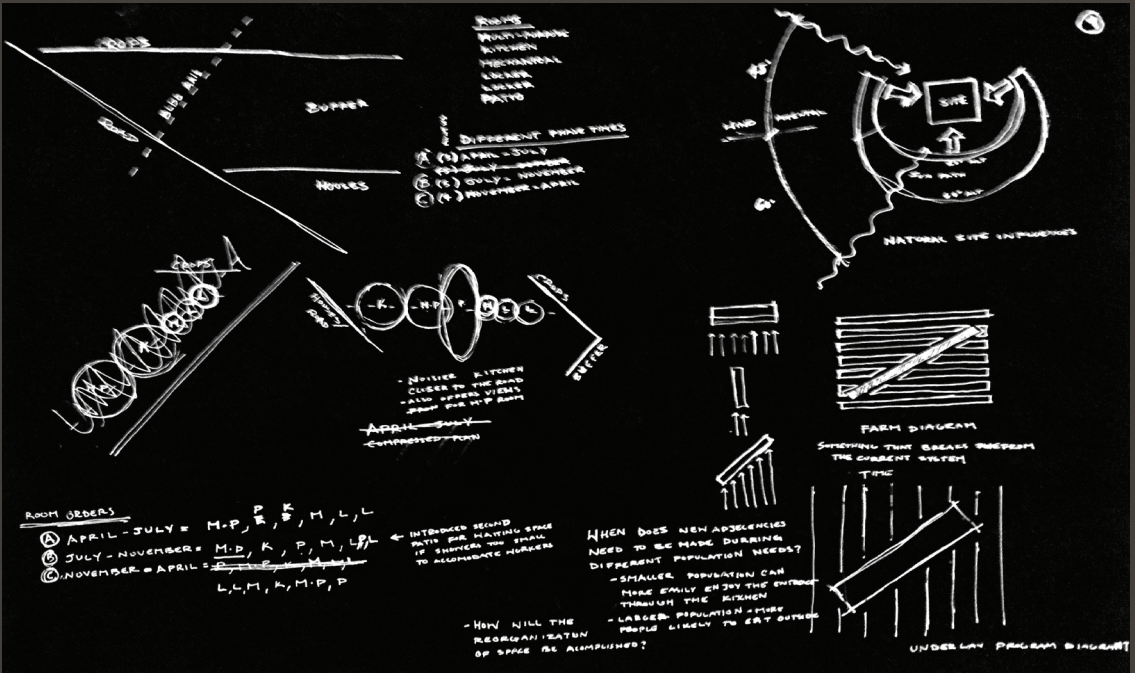 CROPS
BLDG AXIS
ROAD
BUFFER
HOUSES
ROOMS
MULTI-PURPOSE
KITCHEN
MECHANICAL
LOCKER
LOCKER
PATIO
DIFFERENT PHASE TIMES
A (3) APRIL - JULY
(3) JULY - OCTOBER
B (3) JULY - NOVEMBER
C (4) NOVEMBER - APRIL
45°
WIND
60°
SITE
SUN PATH
NATURAL SITE INFLUENCES
CROPS
HOUSES
ROAD
K
M.P
P
M
L
L
CROPS
BUFFER
- NOISIER KITCHEN
CLOSER TO THE ROAD
- ALSO OFFERS VIEWS
FROM FOR M.P ROOM
APRIL - JULY
COMPRESSED PLAN
FARM DIAGRAM
SOMETHING THAT BREAKS FREE FROM
THE CURRENT SYSTEM
TIME
ROOM ORDERS
A APRIL - JULY = M.P, P, K, M, L, L
B JULY - NOVEMBER = M.P, K, P, M, L, P, L
C NOVEMBER = APRIL = P, M.P, K, M, L, L
L, L, M, K, M.P, P
← INTRODUCED SECOND
PATIO FOR WAITING SPACE
IF SHOWER TOO SMALL
TO ACCOMODATE WORKERS
WHEN DOES NEW ADJECENCIES
NEED TO BE MADE DURRING
DIFFERENT POPULATION NEEDS?
- SMALLER POPULATION CAN
MORE EASILY ENJOY THE ENTRANCE
THROUGH THE KITCHEN
- LARGER POPULATION = MORE
PEOPLE LIKELY TO EAT OUTSIDE
- HOW WILL THE
REORGANIZATON
OF SPACE BE ACOMPLISHED?
UNDERLAY PROGRAM DIAGRAM